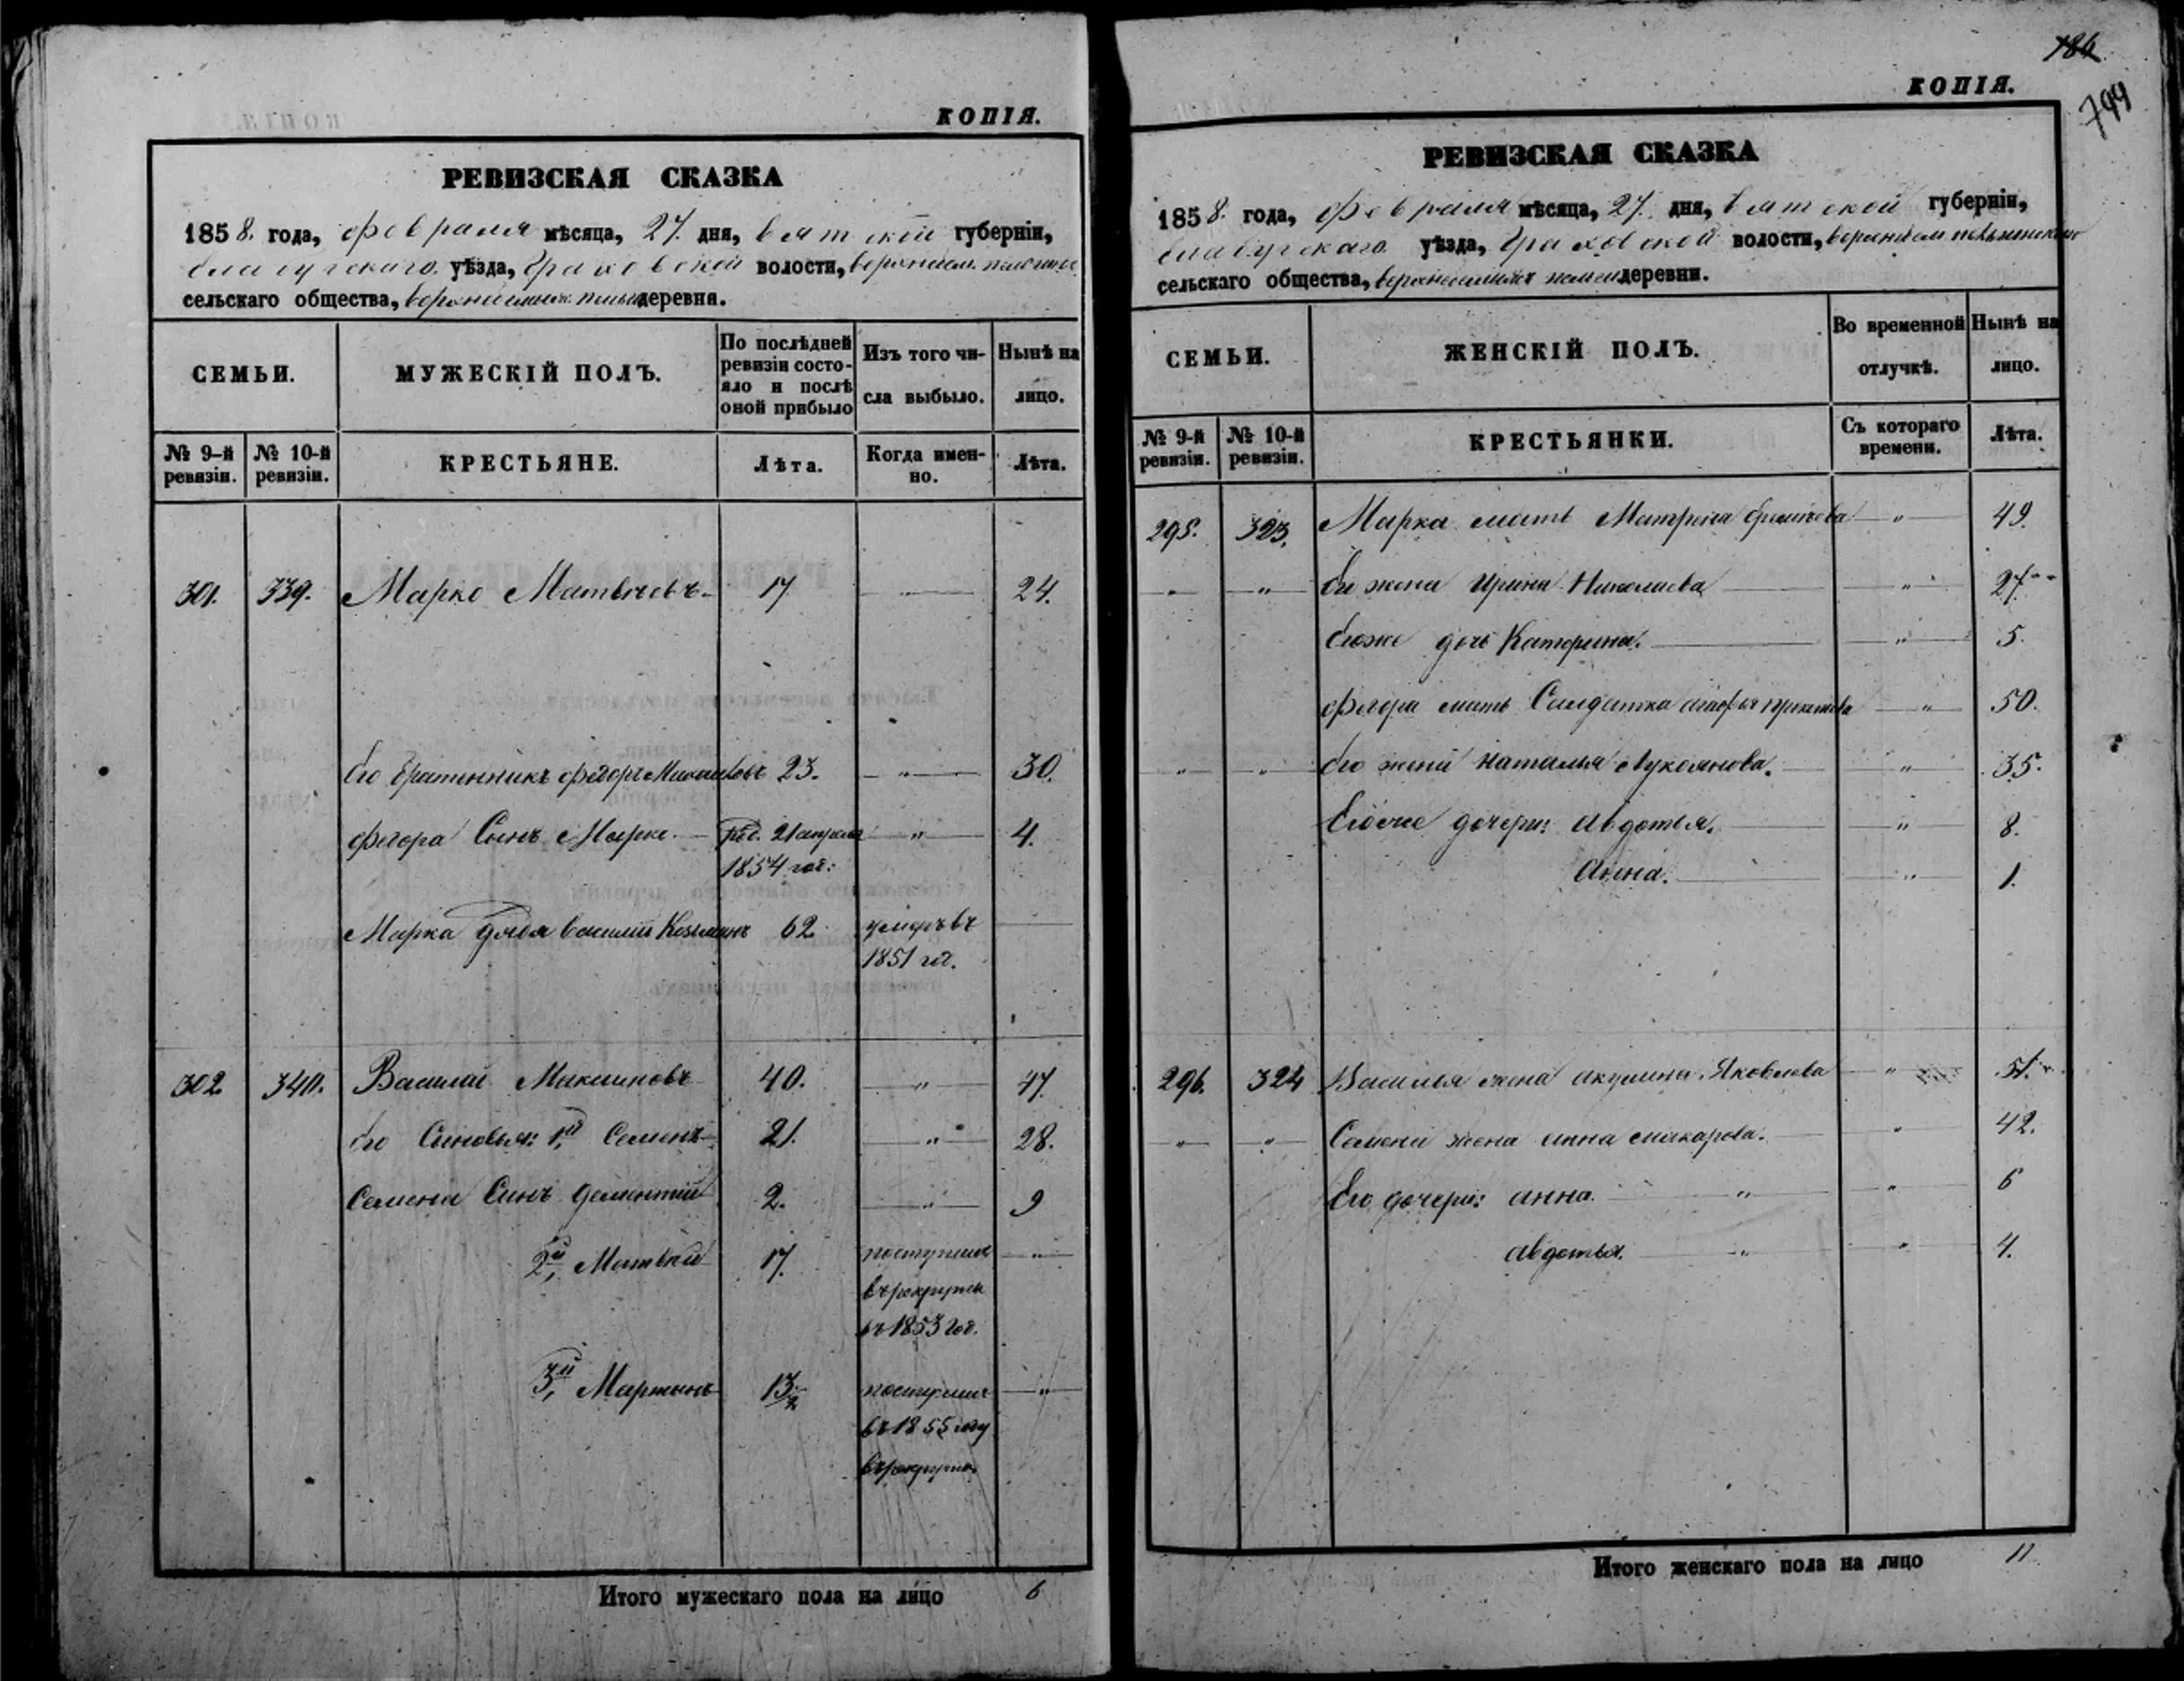 КОПІЯ.
РЕВИЗСКАЯ СКАЗКА
1858. года, февраля мѣсяца, 27. дня, вятской губерніи,
елабугскаго уѣзда, Граховской волости,
сельскаго общества, деревня.
СЕМЬИ.
МУЖЕСКІЙ ПОЛЪ.
По послѣдней ревизіи состояло и послѣ оной прибыло
Изъ того числа выбыло.
Нынѣ на лицо.
№ 9-й ревизіи.
№ 10-й ревизіи.
КРЕСТЬЯНЕ.
Лѣта.
Когда именно.
Лѣта.
301. 339. Марко Матвѣевъ 17 24.
его братенникъ федоръ 23. — " — 30.
федора Сынъ Марко. — род. 21 апреля — " — 4.
1854 год:
Марка дядя василий Козминъ 62 умеръ въ
1851 год.
302 340. Василий Максимовъ 40. — " — 47.
его Сыновья: 1й Семенъ 21. — " — 28.
Семена Сынъ дементий 2. — " — 9
2й, Матвей 17. поступилъ — " —
въ рекруты
въ 1853 год.
3й, Мартынъ 13 поступилъ — " —
въ 1855 году
въ рекруты
Итого мужескаго пола на лицо 6
186
799
КОПІЯ.
РЕВИЗСКАЯ СКАЗКА
1858. года, февраля мѣсяца, 27. дня, вятской губерніи,
елабугскаго уѣзда, Граховской волости,
сельскаго общества, деревни.
СЕМЬИ.
ЖЕНСКІЙ ПОЛЪ.
Во временной отлучкѣ.
Нынѣ на лицо.
№ 9-й ревизіи.
№ 10-й ревизіи.
КРЕСТЬЯНКИ.
Съ котораго времени.
Лѣта.
295. 323. Марка мать Матрена — " — 49.
— " — — " — его жена Ирина Николаева — " — 27
егоже дочь Катерина. — " — 5.
федора мать Салдатка — " — 50.
— " — — " — его жена наталья Лукоянова. — " — 35.
Егоже дочери: авдотья. — " — 8.
Анна. — " — 1.
296. 324 Василья жена акулина Яковлева — " — 51.
— " — — " — Семена жена анна макарова. " 42.
Его дочери: анна. — " — " 6
авдотья. — " — " 4.
Итого женскаго пола на лицо 11